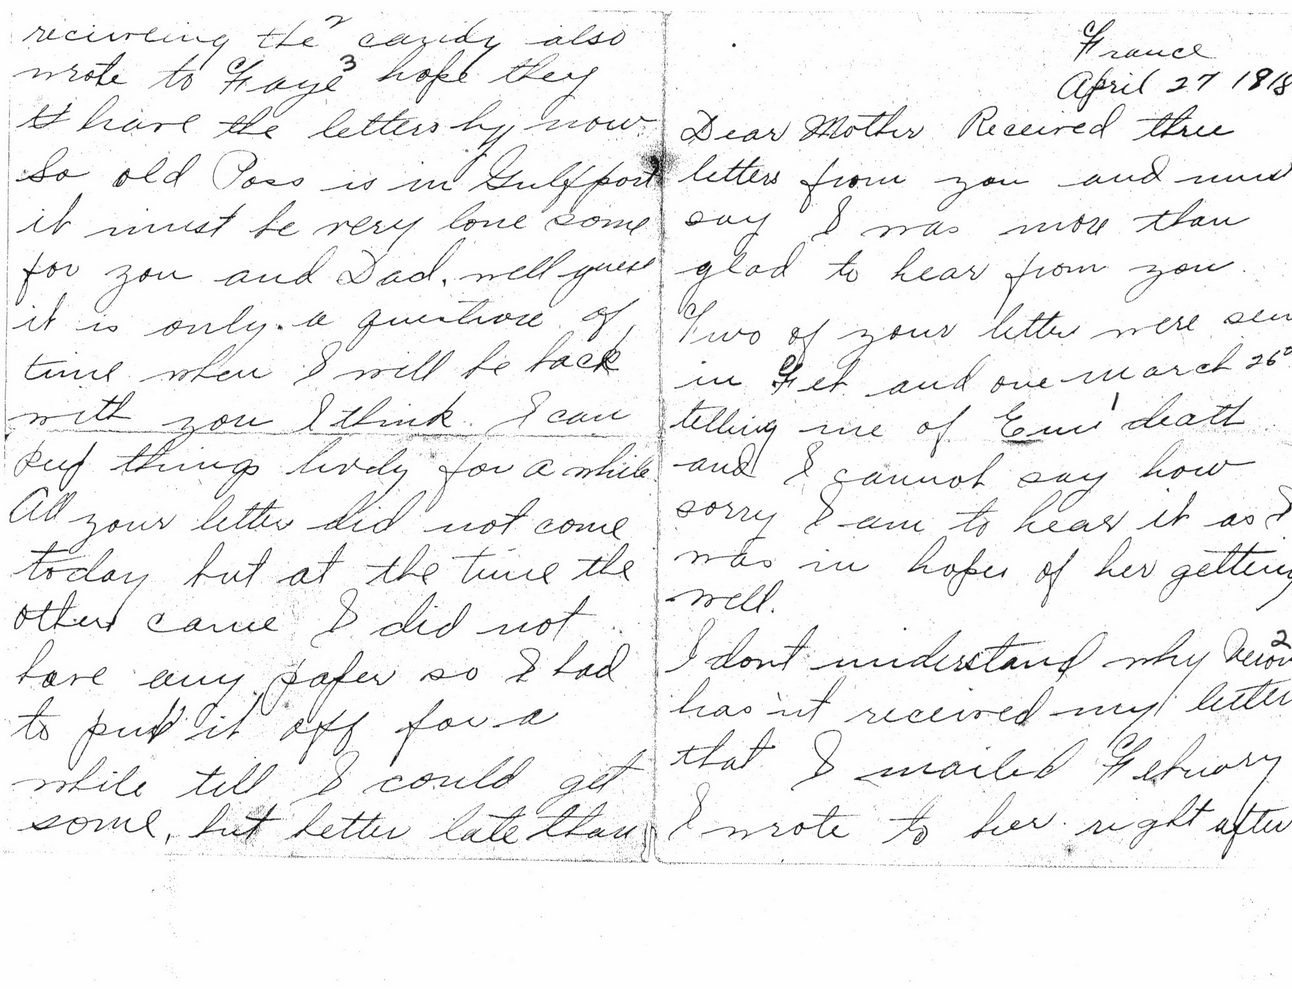 France
April 27 1918
Dear Mother Received three
letters from you and must
say I was more than
glad to hear from you.
Two of your letter were sen
in Feb and one March 26
telling me of Em' 1 death
and I cannot say how
sorry I am to hear it as I
was in hopes of her getting
well.
I dont understand why 2
has'nt received my letter
that I mailed Febuary
I wrote to her right after
reciveing the 2 candy also
wrote to Faye 3 hope they
have the letters by now.
So old Poss is in Gulfport
it must be very lone some
for you and Dad. well guess
it is only a question of
time when I will be back
with you I think I can
put things lively for a while
All your letter did not come
today but at the time the
others came I did not
have any paper so I had
to put it off for a
while till I could get
some, but better late than